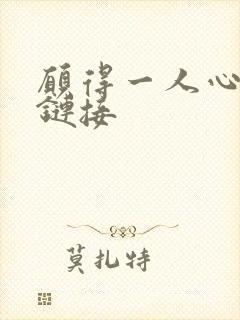 願得一人心
鏈接
莫扎特